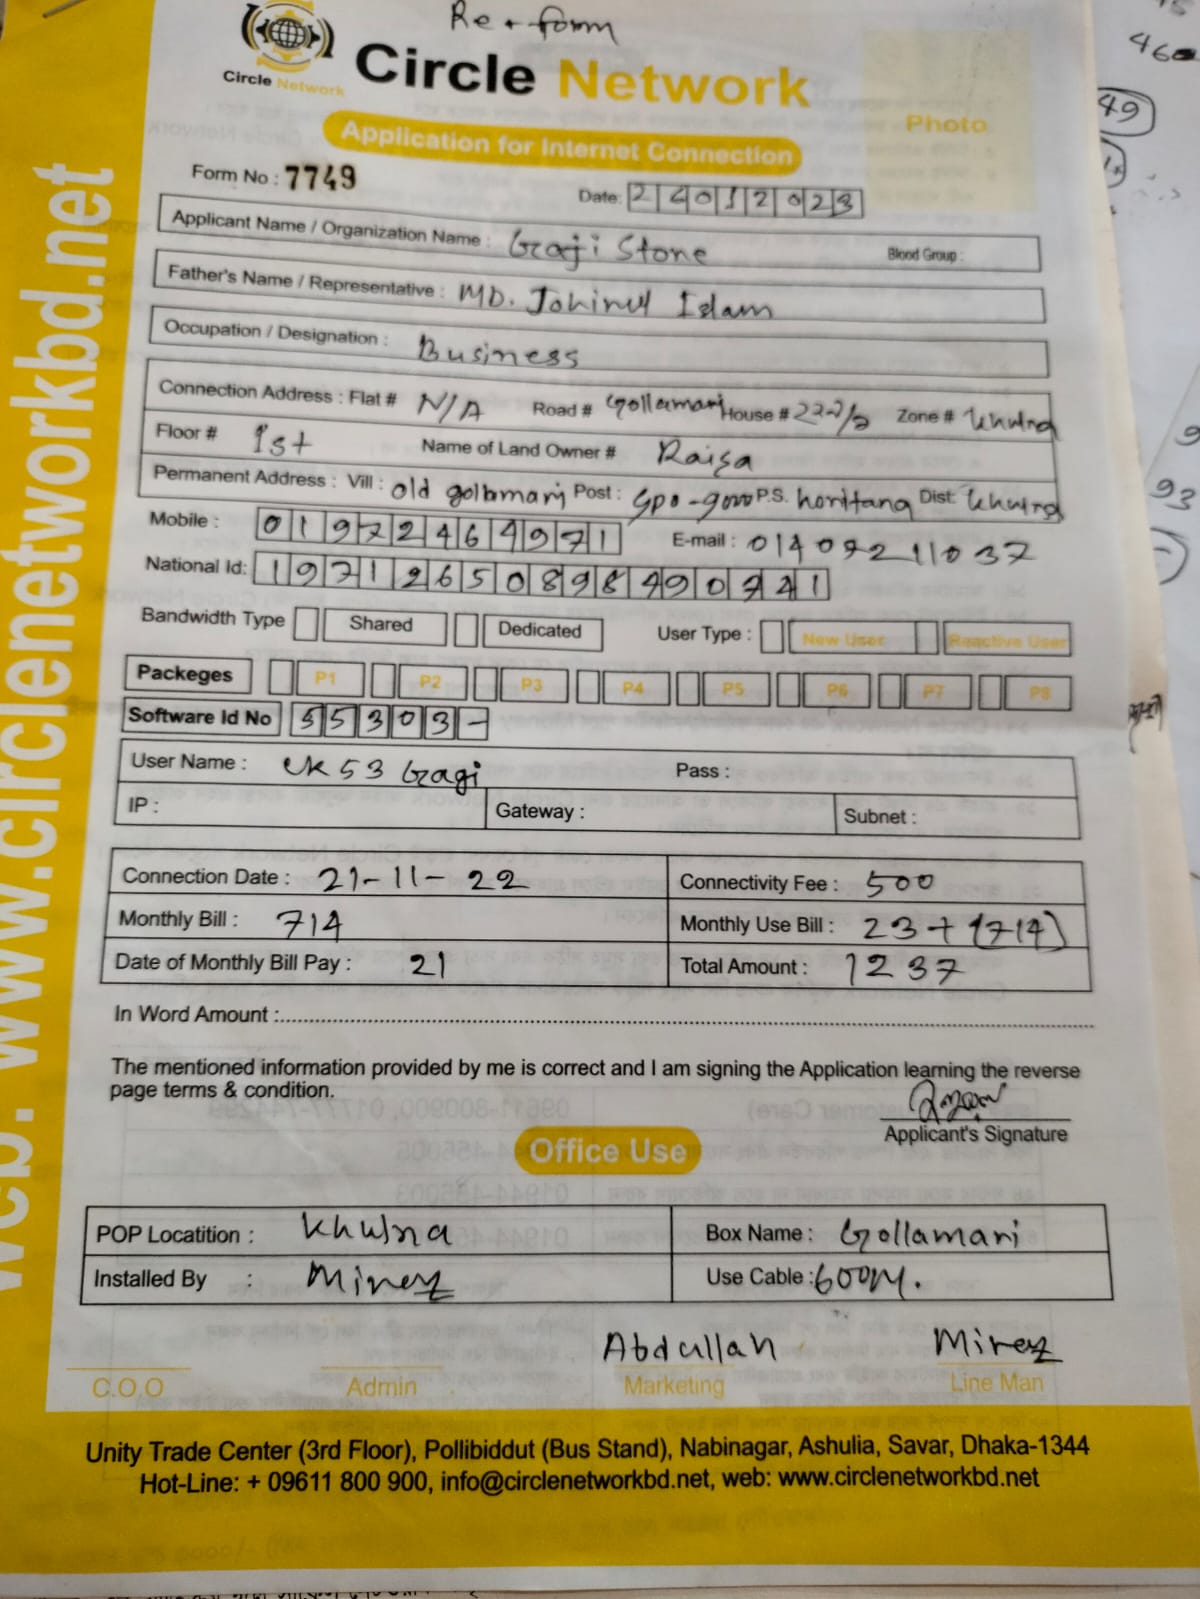 Re + form
Circle Network
Circle Network
Photo
Application for Internet Connection
Form No : 7749
Date: 24012023
Applicant Name / Organization Name : Gazi Stone Blood Group :
Father's Name / Representative : MD. Johirul Islam
Occupation / Designation : Business
Connection Address : Flat # N/A Road # Gollamari House # Zone # Khulna
Floor # 1st Name of Land Owner # Raisa
Permanent Address : Vill : old gollamari Post : Gpo-9000 P.S. horitang Dist: Khulna
Mobile : 01972464971 E-mail : 01409211037
National Id: 19712650898490741
Bandwidth Type Shared Dedicated User Type : New User Reactive User
Packeges P1 P2 P3 P4 P5 P6 P7 P8
Software Id No 55303-
User Name : ck53 Gagi Pass :
IP : Gateway : Subnet :
Connection Date : 21-11-22 Connectivity Fee : 500
Monthly Bill : 714 Monthly Use Bill : 23+(714)
Date of Monthly Bill Pay : 21 Total Amount : 1237
In Word Amount :
The mentioned information provided by me is correct and I am signing the Application learning the reverse
page terms & condition.
Applicant's Signature
Office Use
POP Locatition : Khulna Box Name : Gollamari
Installed By : Miraz Use Cable : 600M.
Abdullah Miraz
C.O.O Admin Marketing Line Man
Unity Trade Center (3rd Floor), Pollibiddut (Bus Stand), Nabinagar, Ashulia, Savar, Dhaka-1344
Hot-Line: + 09611 800 900, info@circlenetworkbd.net, web: www.circlenetworkbd.net
web: www.circlenetworkbd.net
460
49
93